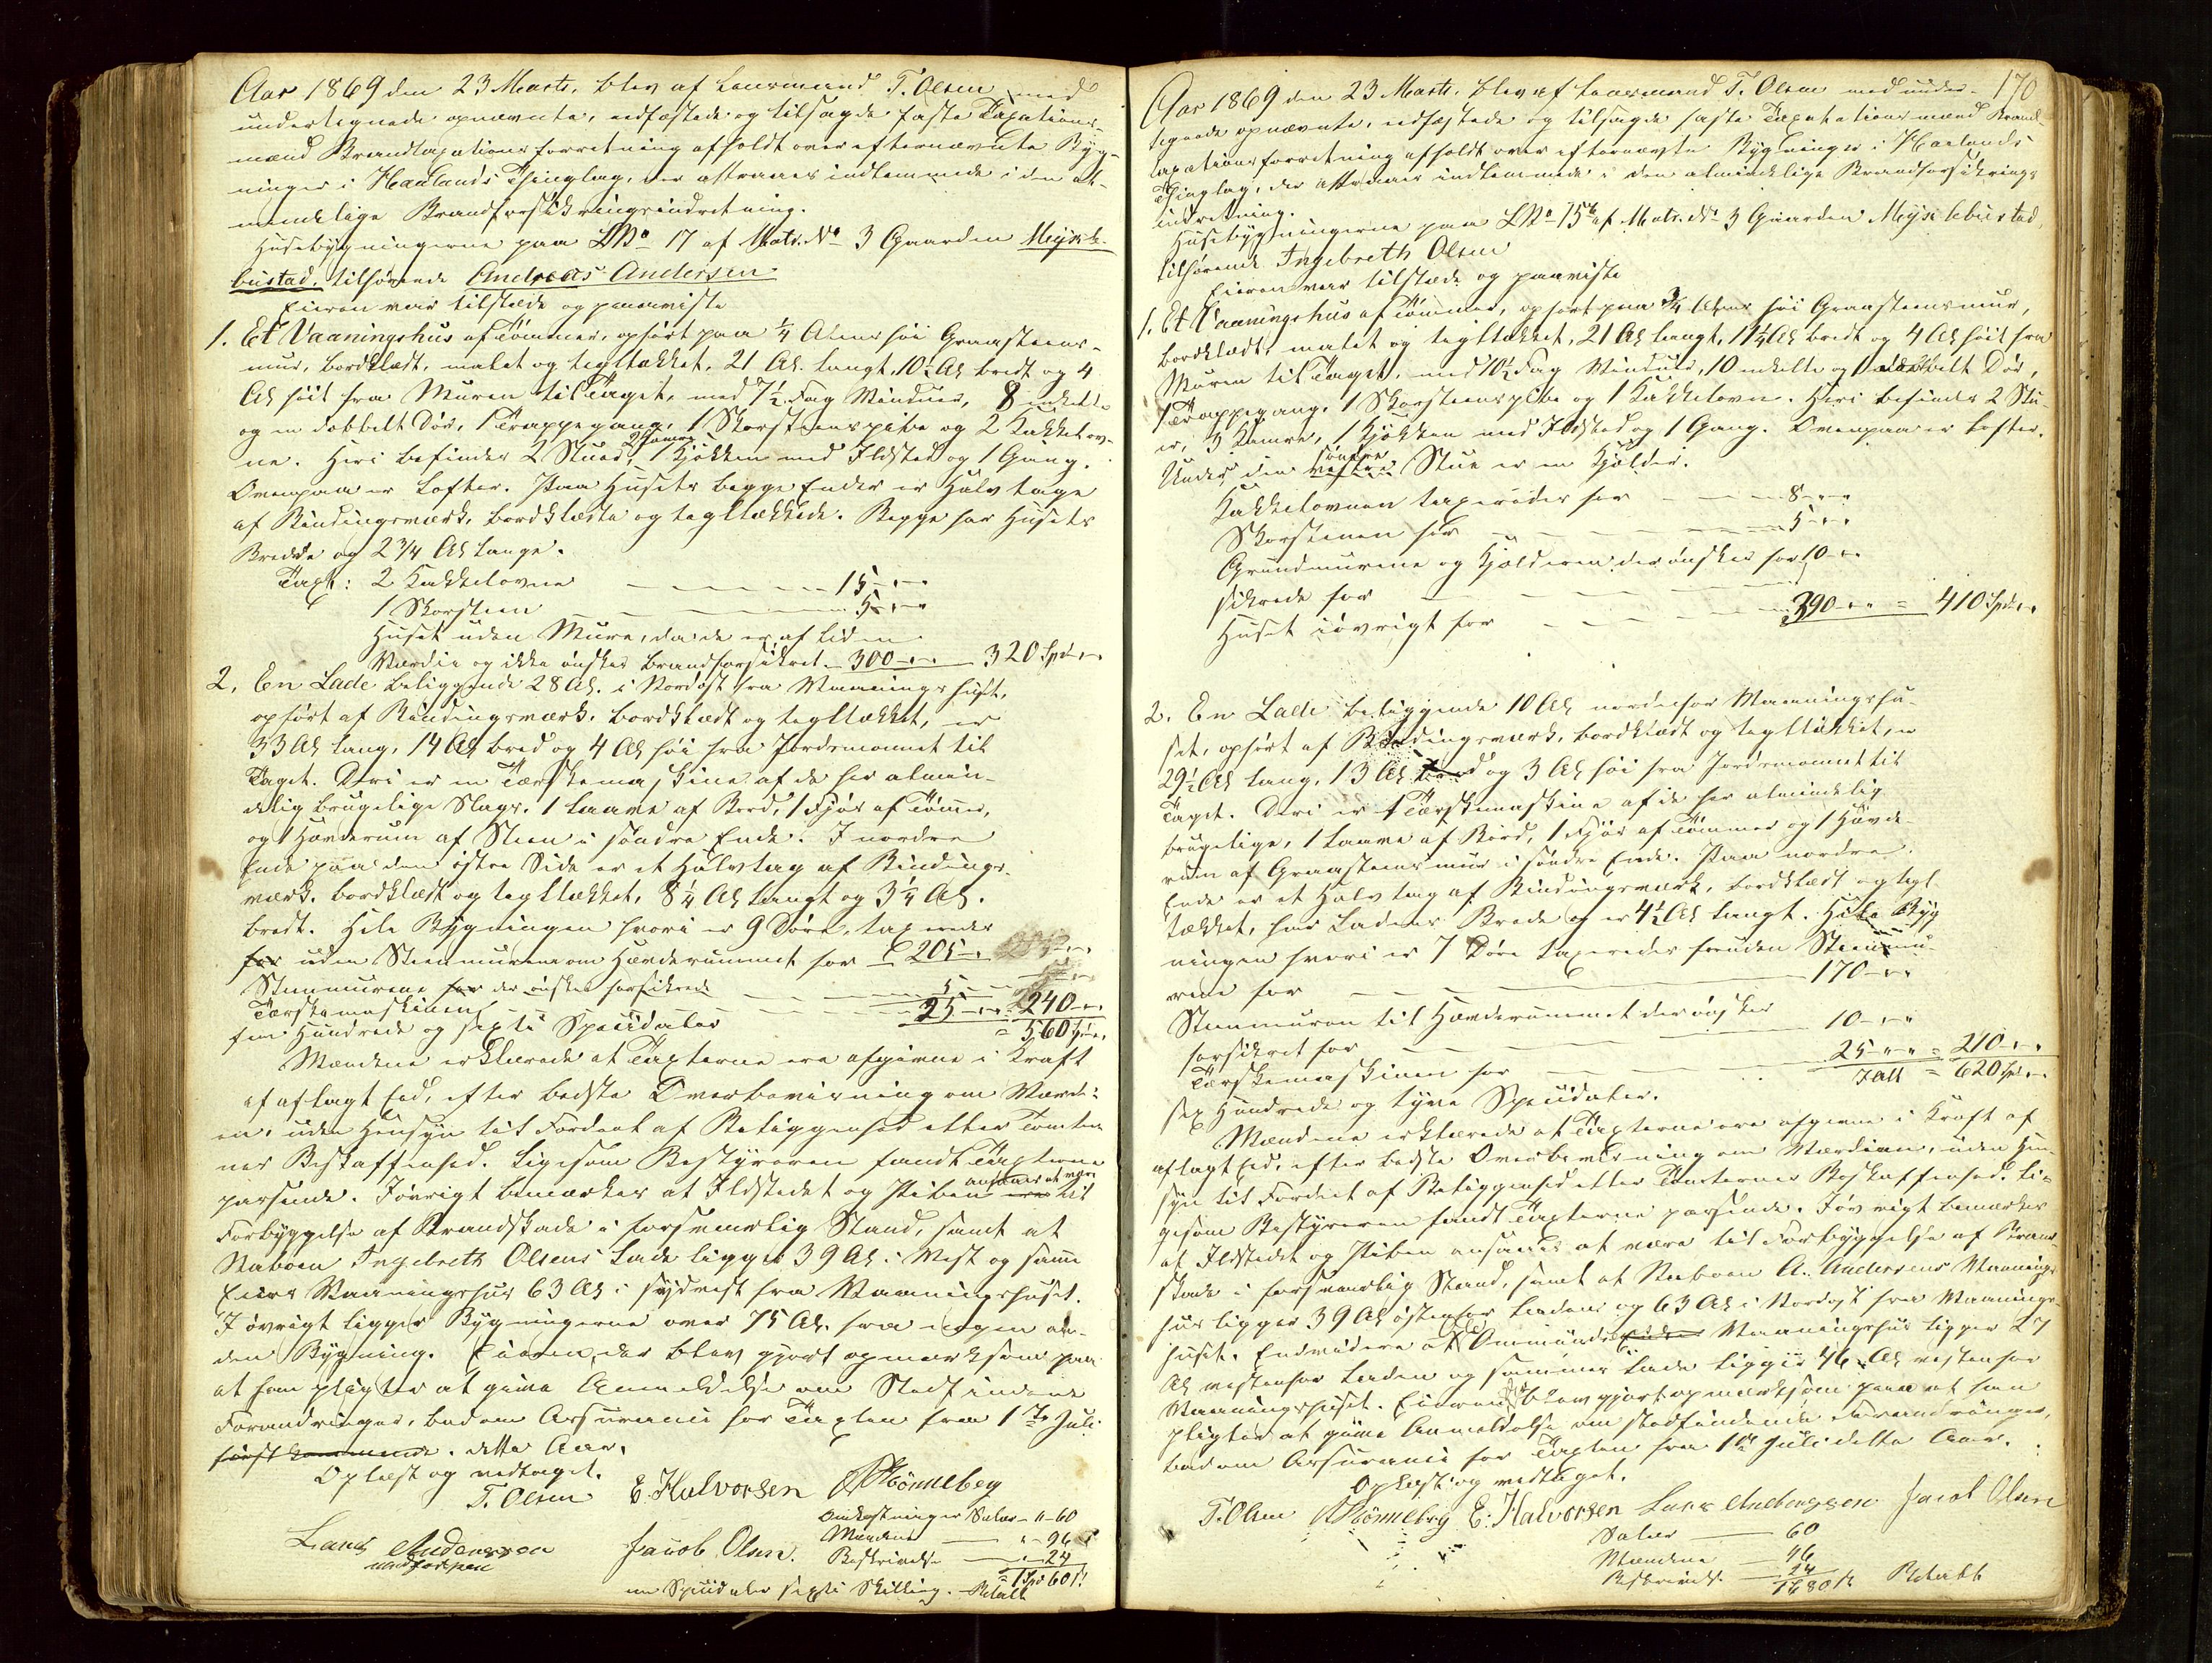 Aar 1869 den 23 Marts, blev af Lensmand T. Olsen med
undertegnede opnævnte, edfæstede og tilsagde faste Taxations-
mænd Brandtaxationsforretning afholdt over efternævnte Byg-
ninger i Haalands Thinglag, der attraaes indlemmede i den al-
mindelige Brandforsikringsindretning.
Husebygningerne paa LNo 17 af Matr. No 3 Gaarden Meyse-
bustad, tilhørende Andreas Andersen
Eieren var tilstæde og paaviste
1. Et Vaaningshus af Tömmer, opfört paa ¼ Alens höi Graasteens-
mur, bordklædt, malet og tegltækket, 21 Al. langt, 10½ Al. bredt og 4
Al höit fra Muren til Taget, med 7½ Fag Vinduer, 8 enkelte
og en dobbelt Dör, 1 Trappegang, 1 Skorsteenspibe og 2 Kakkelov-
ne. Heri befindes 2 Stuer, 2 Kamre 1 Kjökken med Ildsted og 1 Gang.
Ovenpaa er Lofter. Paa Husets begge Ender er Halvtage
af Bindingsværk, bordklædte og tegltækkede. Begge har Husets
Bredde og 2 3/4 Al. lange.
Taxt: 2 Kakkelovne 15 - " - "
1 Skorsteen 5 - " - "
Huset uden Mure, da de er af liden
Værdie og ikke önskes brandforsikret 300 - " - " 320 Spd - " - "
2, En Lade beliggende 28 Al. i Nordost fra Vaaningshuset,
opfört af Bindingsværk, bordklædt og tegltækket, er
33 Al lang, 14 Al bred og 4 Al höi fra Jordsmonnet til
Taget. Deri er en Tærskemaskine af de her almin-
delig brugelige Slags, 1 Laave af Bord, 1 Fjös af Tömmer,
og 1 Hövderum af Steen i söndre Ende. I nordre
Ende paa den östre Side er et Halvtag af Bindings-
værk, bordklædt og tegltækket, 8¼ Al langt og 3¼ Al.
bredt. Hele Bygningen hvori er 9 Döre, taxeredes
for uden Steenmurene om Hövderummet for 205 - "
Steenmurene for der önskes forsikrede 5 - "
Tærskemaskinen 25 - " - " 240 - " - "
fem Hundrede og sexti Speciedaler = 560 Spd.
Mændene erklærede at Taxterne ere afgivne i Kraft
af aflagt Eed, efter bedste Overbeviisning om Værdi-
en, uden Hensyn til Fordeel af Beliggenhed eller Tomter-
nes Beskaffenhed. Ligesom Bestyreren fandt Taxterne
passende. Iövrigt bemærkes at Ildstedet og Piben ansaaes at være til
Forbyggelse af Brandskade i forsvarlig Stand, samt at
Naboen Ingebreth Olsens Lade ligger 39 Al. i Vest og samme
Eiers Vaaningshus 63 Al. i sydvest fra Vaaningshuset.
Iövrigt ligger Bygningerne over 75 Al. fra nogen an-
den Bygning. Eieren, der blev gjort opmærksom paa
at han pligter at give Anmeldelse om Stedfindene
Forandringer, bad om Assurance for Taxten fra 1ste Juli
först kommende. dette Aar.
Oplæst og vedtaget.
T. Olsen E. Halvorsen O Rönneberg
Lars Andersen Jacob Olsen.
med ført pen
Omkostninger Salær - " - 60
Mændene " - 96
Beskrivelse " - 24
= 1 Spd 60 s
en Speciedaler sexti Skilling. Betalt
170
Aar 1869 den 23 Marts, blev af Lensmand T. Olsen med under-
tegnede opnævnte, edfæstede og tilsagde faste Taxationsmænd Brand-
taxationsforretning afholdt over efternævnte Bygninger i Haalands
Thinglag, der attraaes indlemmede i den almindelige Brandforsikrings-
indretning.
Husebygningerne paa LNo 15b af Matr. No 3 Gaarden Meyselebustad,
tilhörende Ingebreth Olsen
Eieren var tilstæde og paaviste
1. Et Vaaningshus af Tömmer, opfört paa 3/4 Alens höi Graasteensmur,
bordklædt, malet og tegltækket, 21 Al langt, 11¼ Al bredt og 4 Al höit fra
Muren til Taget, med 10½ Fag Vinduer, 10 enkelte og 1 dobbelt Dör,
1 Trappegang, 1 Skorsteenspibe og 1 Kakkelovn. Heri befindes 2 Stu-
er, 3 Kamre, 1 Kjökken med Ildsted og 1 Gang. Ovenpaa er Lofter.
Under den vestre söndre Stue er en Kjelder.
Kakkelovnen taxeredes for 8 - " - "
Skorstenen for 5 - " - "
Grundmurene og Kjelderen der önskes for- 10 - " - "
sikrede for
Huset iövrigt for 390 - " - " = 410 Spd - " - "
2. En Lade beliggende 10 Al nordenfor Vaaningshu-
set, opfört af Bindingsværk, bordklædt og tegltækket, er
29½ Al lang, 13 Al bred og 3 Al höi fra Jordsmonnet til
Taget. Deri er 1 Tærskemaskine af de her almindelig
brugelige, 1 Laave af Bord, 1 Fjös af Tömmer og 1 Hövde-
rum af Graasteensmur i söndre Ende. Paa nordre
Ende er et Halvtag af Bindingsværk, bordklædt og tegl-
tækket, har Ladens Brede og er 4½ Al langt. Hele Byg-
ningen hvori er 7 Döre taxeredes foruden Steenmu-
rene for 170 - " - "
Steenmuren til Hövderummet der önskes
forsikret for 10 - " - "
Tærskemaskinen for 25 - " - " = 210 - " - "
Ialt = 620 Spd - "
sex Hundrede og tyve Speciedaler.
Mændene erklærede at Taxterne ere afgivne i Kraft af
aflagt Eed, efter bedste Overbeviisning om Værdien, uden Hen-
syn til Fordeel af Beliggenhed eller Tomternes Beskaffenhed. Li-
gesom Bestyreren fandt Taxterne passende. Iövrigt bemærkes
at Ildstedet og Piben ansaaes at være til Forbyggelse af Brand-
skade i forsvarlig Stand, samt at Naboen A. Andersens Vaanings-
hus ligger 39 Al östenfor Laden og 63 Al i Nordost fra Vaanings-
huset. Endvidere at Vaaningshus ligger 27
Al vestenfor Laden og sammes Lade ligger 46 Al vestenfor
Vaaningshuset. Eieren der blev gjort opmærksom paa at han
pligter at give Anmeldelse om stedfindende Forandringer,
bad om Assurance for Taxten fra 1ste Juli dette Aar.
Oplæst og vedtaget.
T. Olsen O Rönneberg E. Halvorsen Lars Andersen Jacob Olsen
Salær 60
Mændene 96
Beskrivelse 24
Betalt